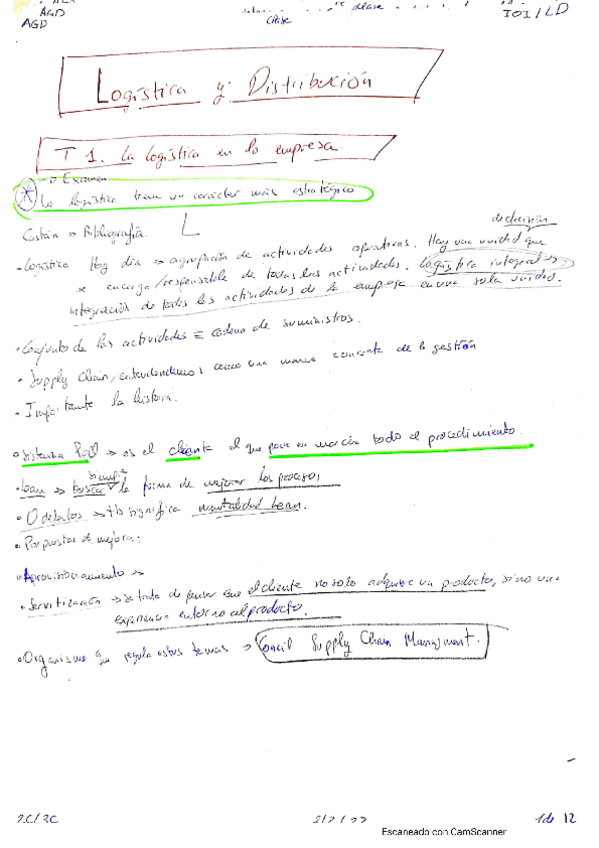 AGD
AGD
clase
clase
IOI/LD
Logística y Distribución
T 1. La logística en la empresa.
Examen
* La logística tiene un carácter más estratégico
Bibliografía.
de decisión
• Logística Hoy día => agrupación de actividades operativas. Hay una unidad que
se encarga/responsable de todas las actividades. Logística integral =>
integración de todos los actividades de la empresa en una sola unidad.
• Conjunto de las actividades = cadena de suministros.
• Supply Chain, como una manera de la gestión
• Importante la historia.
• Sistema Pull => es el cliente el que pone en marcha todo el procedimiento.
siempre
• lean => buscar la forma de mejorar los procesos,
• O defectos => tb significa mentalidad lean.
• Propuestas de mejora:
• Aprovisionamiento =>
• Servitización => se trata de pensar que el cliente no solo adquiere un producto, sino una
experiencia entorno al producto.
• Organismo que regula estos temas => Concil Supply Chain Managment.
1 de 12
Escaneado con CamScanner